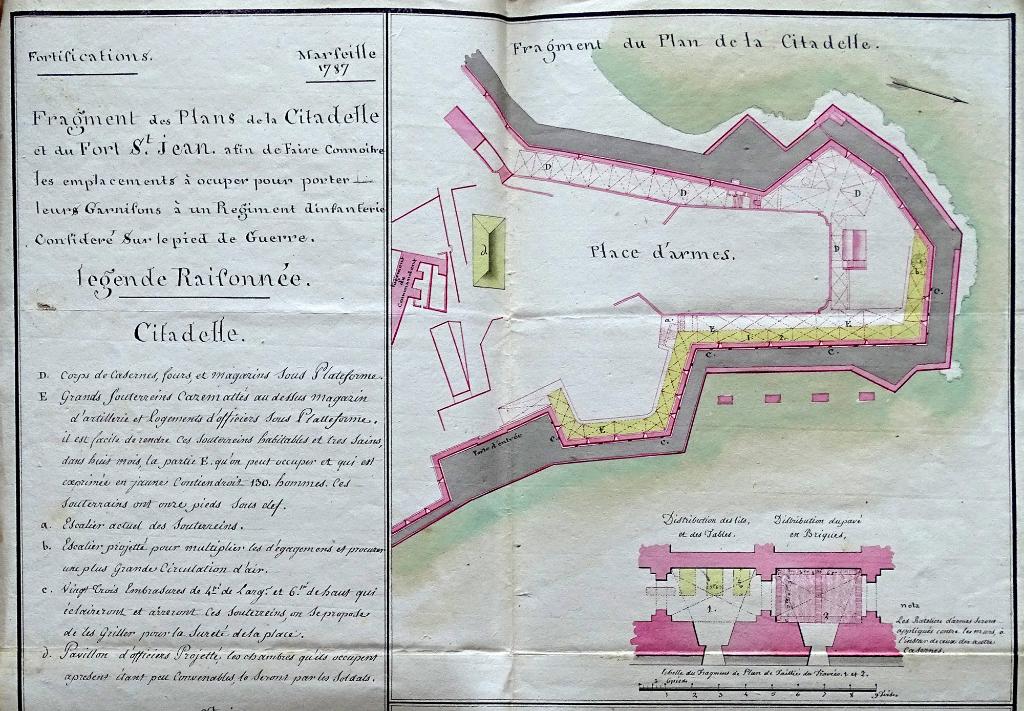 Fortifications.
Marseille
1787
Fragment des Plans de la Citadelle
et du Fort St. Jean. afin de Faire Connoitre
les emplacements à ocuper pour porter
leurs Garnisons à un Regiment d'infanterie
Consideré Sur le pied de Guerre.
Legende Raisonnée.
Citadelle.
D. Corps de Casernes, fours, et magazins Sous Plateforme.
E Grands Souterreins Cazemattés au dessus magazin
d'artillerie et Logements d'officiers Sous Platteforme,
il est facile de rendre Ces Souterreins habitables et tres Sains,
dans huit mois, la partie E. qu'on peut occuper et qui est
exprimée en jaune Contiendroit 130. hommes. Ces
Souterrains ont onze pieds Sous clef.
a. Escalier actuel des Souterreins.
b. Escalier projetté pour multiplier les dégagemens et procurer
une plus Grande Circulation d'air.
c. Vingt Trois Embrasures de 4.ds de Larg.r et 6.ds de haut qui
éclaireront et aireront Ces Souterreins, on Se propose
de les Griller pour la Sureté de la place.
d. Pavillon d'officiers Projetté, les chambres qu'ils occupent
apresent étant peu Convenables, le Seront par les Soldats.
Fragment du Plan de la Citadelle.
D
D
D
Place d'armes.
D
d
Logement
du
Commandant
b.
c.
a.
E
1.
2.
E
c.
c.
E
c.
c.
Porte d'entrée
Distribution des lits,
et des Tables.
Distribution du pavé
en Briques,
1.
2
nota
Les Rateliers d'armes Seront
appliqués contre les murs, à
l'instar de ceux des autres
Casernes.
Echelle du Fragment de Plan de Détailles du Travées. 1 et 2.
6 pieds
1 2 3 4 5 6 7 8 9 toises